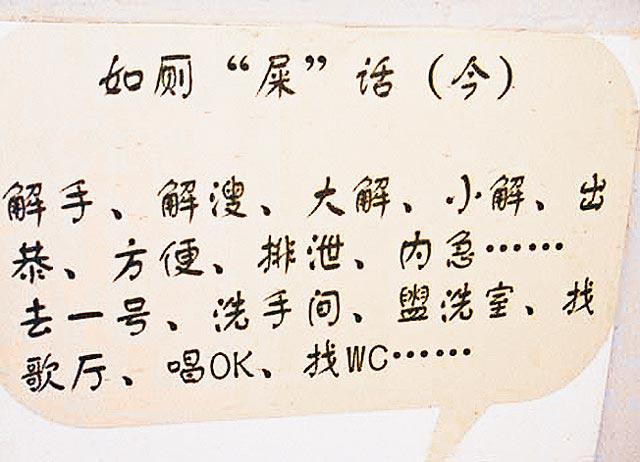 如厕“屎”话（今）
解手、解溲、大解、小解、出
恭、方便、排泄、内急……
去一号、洗手间、盥洗室、找
歌厅、唱OK、找WC……